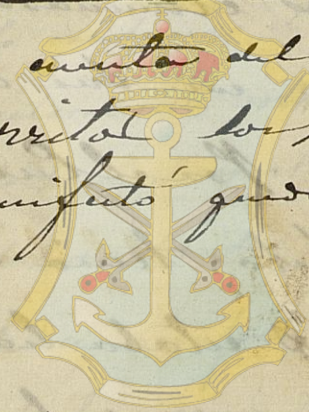 cuenta del
rritos los
nifestó que